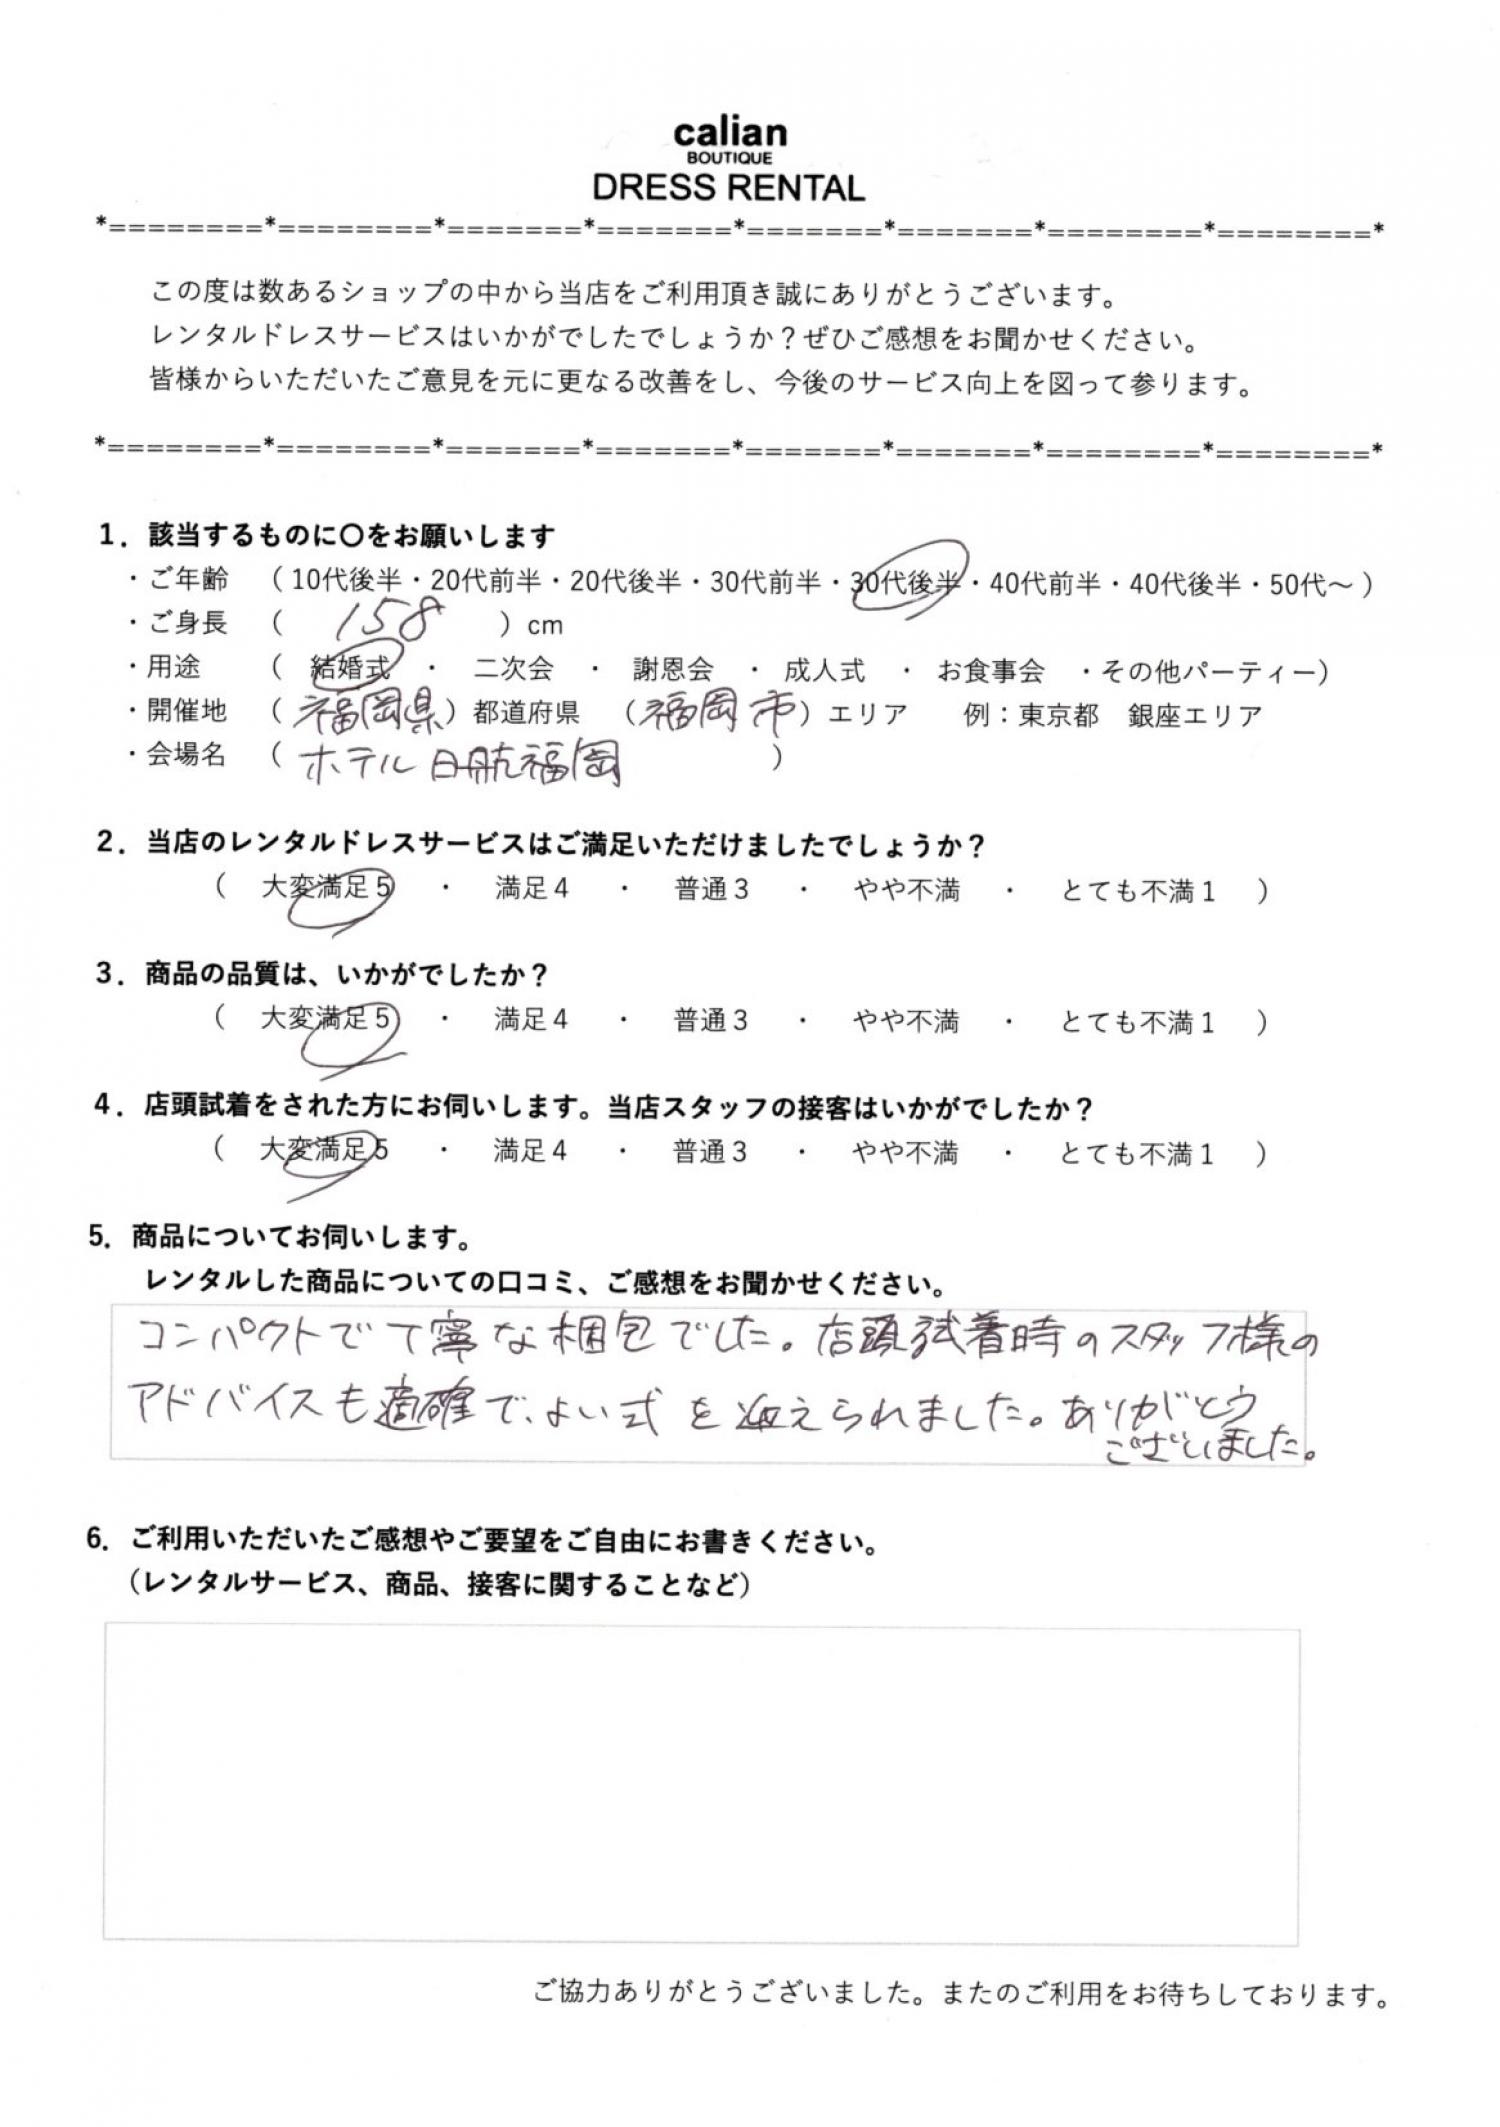 calian
BOUTIQUE
DRESS RENTAL
*========*========*=======*=======*=======*=======*========*========*
この度は数あるショップの中から当店をご利用頂き誠にありがとうございます。
レンタルドレスサービスはいかがでしたでしょうか？ぜひご感想をお聞かせください。
皆様からいただいたご意見を元に更なる改善をし、今後のサービス向上を図って参ります。
*========*========*=======*=======*=======*=======*========*========*
1．該当するものに〇をお願いします
・ご年齢　（ 10代後半・20代前半・20代後半・30代前半・30代後半・40代前半・40代後半・50代～ ）
・ご身長　（　158　）cm
・用途　（　結婚式　・　二次会　・　謝恩会　・ 成人式　・　お食事会　・その他パーティー）
・開催地　（ 福岡県 ）都道府県　（ 福岡市 ）エリア　例：東京都　銀座エリア
・会場名　（ ホテル日航福岡　）
2．当店のレンタルドレスサービスはご満足いただけましたでしょうか？
（　大変満足５　・　満足４　・　普通３　・　やや不満　・　とても不満１　）
3．商品の品質は、いかがでしたか？
（　大変満足５　・　満足４　・　普通３　・　やや不満　・　とても不満１　）
4．店頭試着をされた方にお伺いします。当店スタッフの接客はいかがでしたか？
（　大変満足５　・　満足４　・　普通３　・　やや不満　・　とても不満１　）
5．商品についてお伺いします。
レンタルした商品についての口コミ、ご感想をお聞かせください。
コンパクトで丁寧な梱包でした。店頭試着時のスタッフ様の
アドバイスも適確で、よい式を迎えられました。ありがとう
ございました。
6．ご利用いただいたご感想やご要望をご自由にお書きください。
（レンタルサービス、商品、接客に関することなど）
ご協力ありがとうございました。またのご利用をお待ちしております。